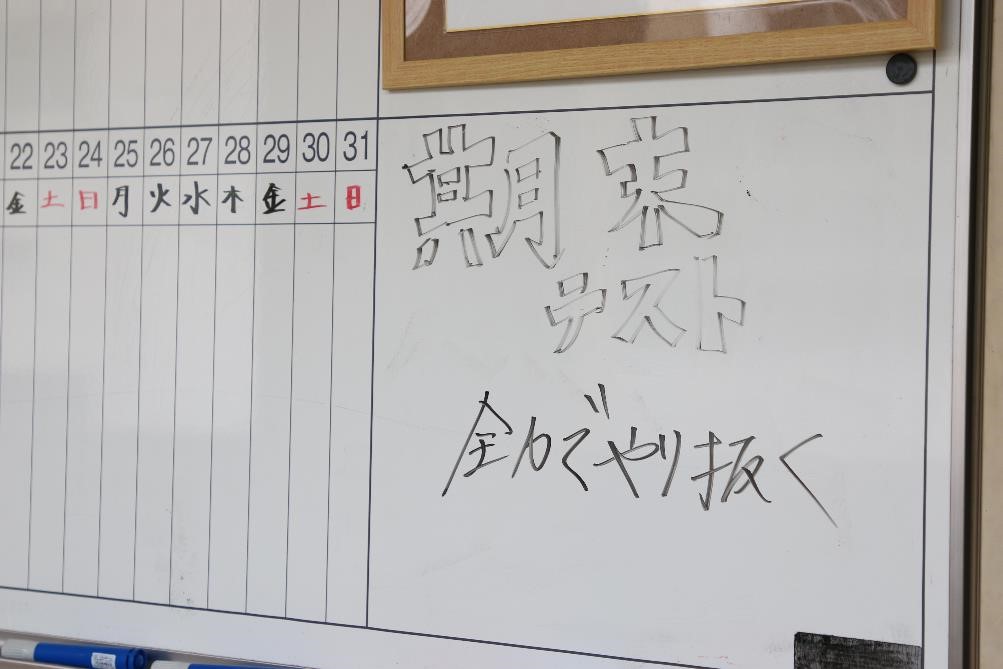 22 23 24 25 26 27 28 29 30 31
金 土 日 月 火 水 木 金 土 日
期末
テスト
全力でやり抜く